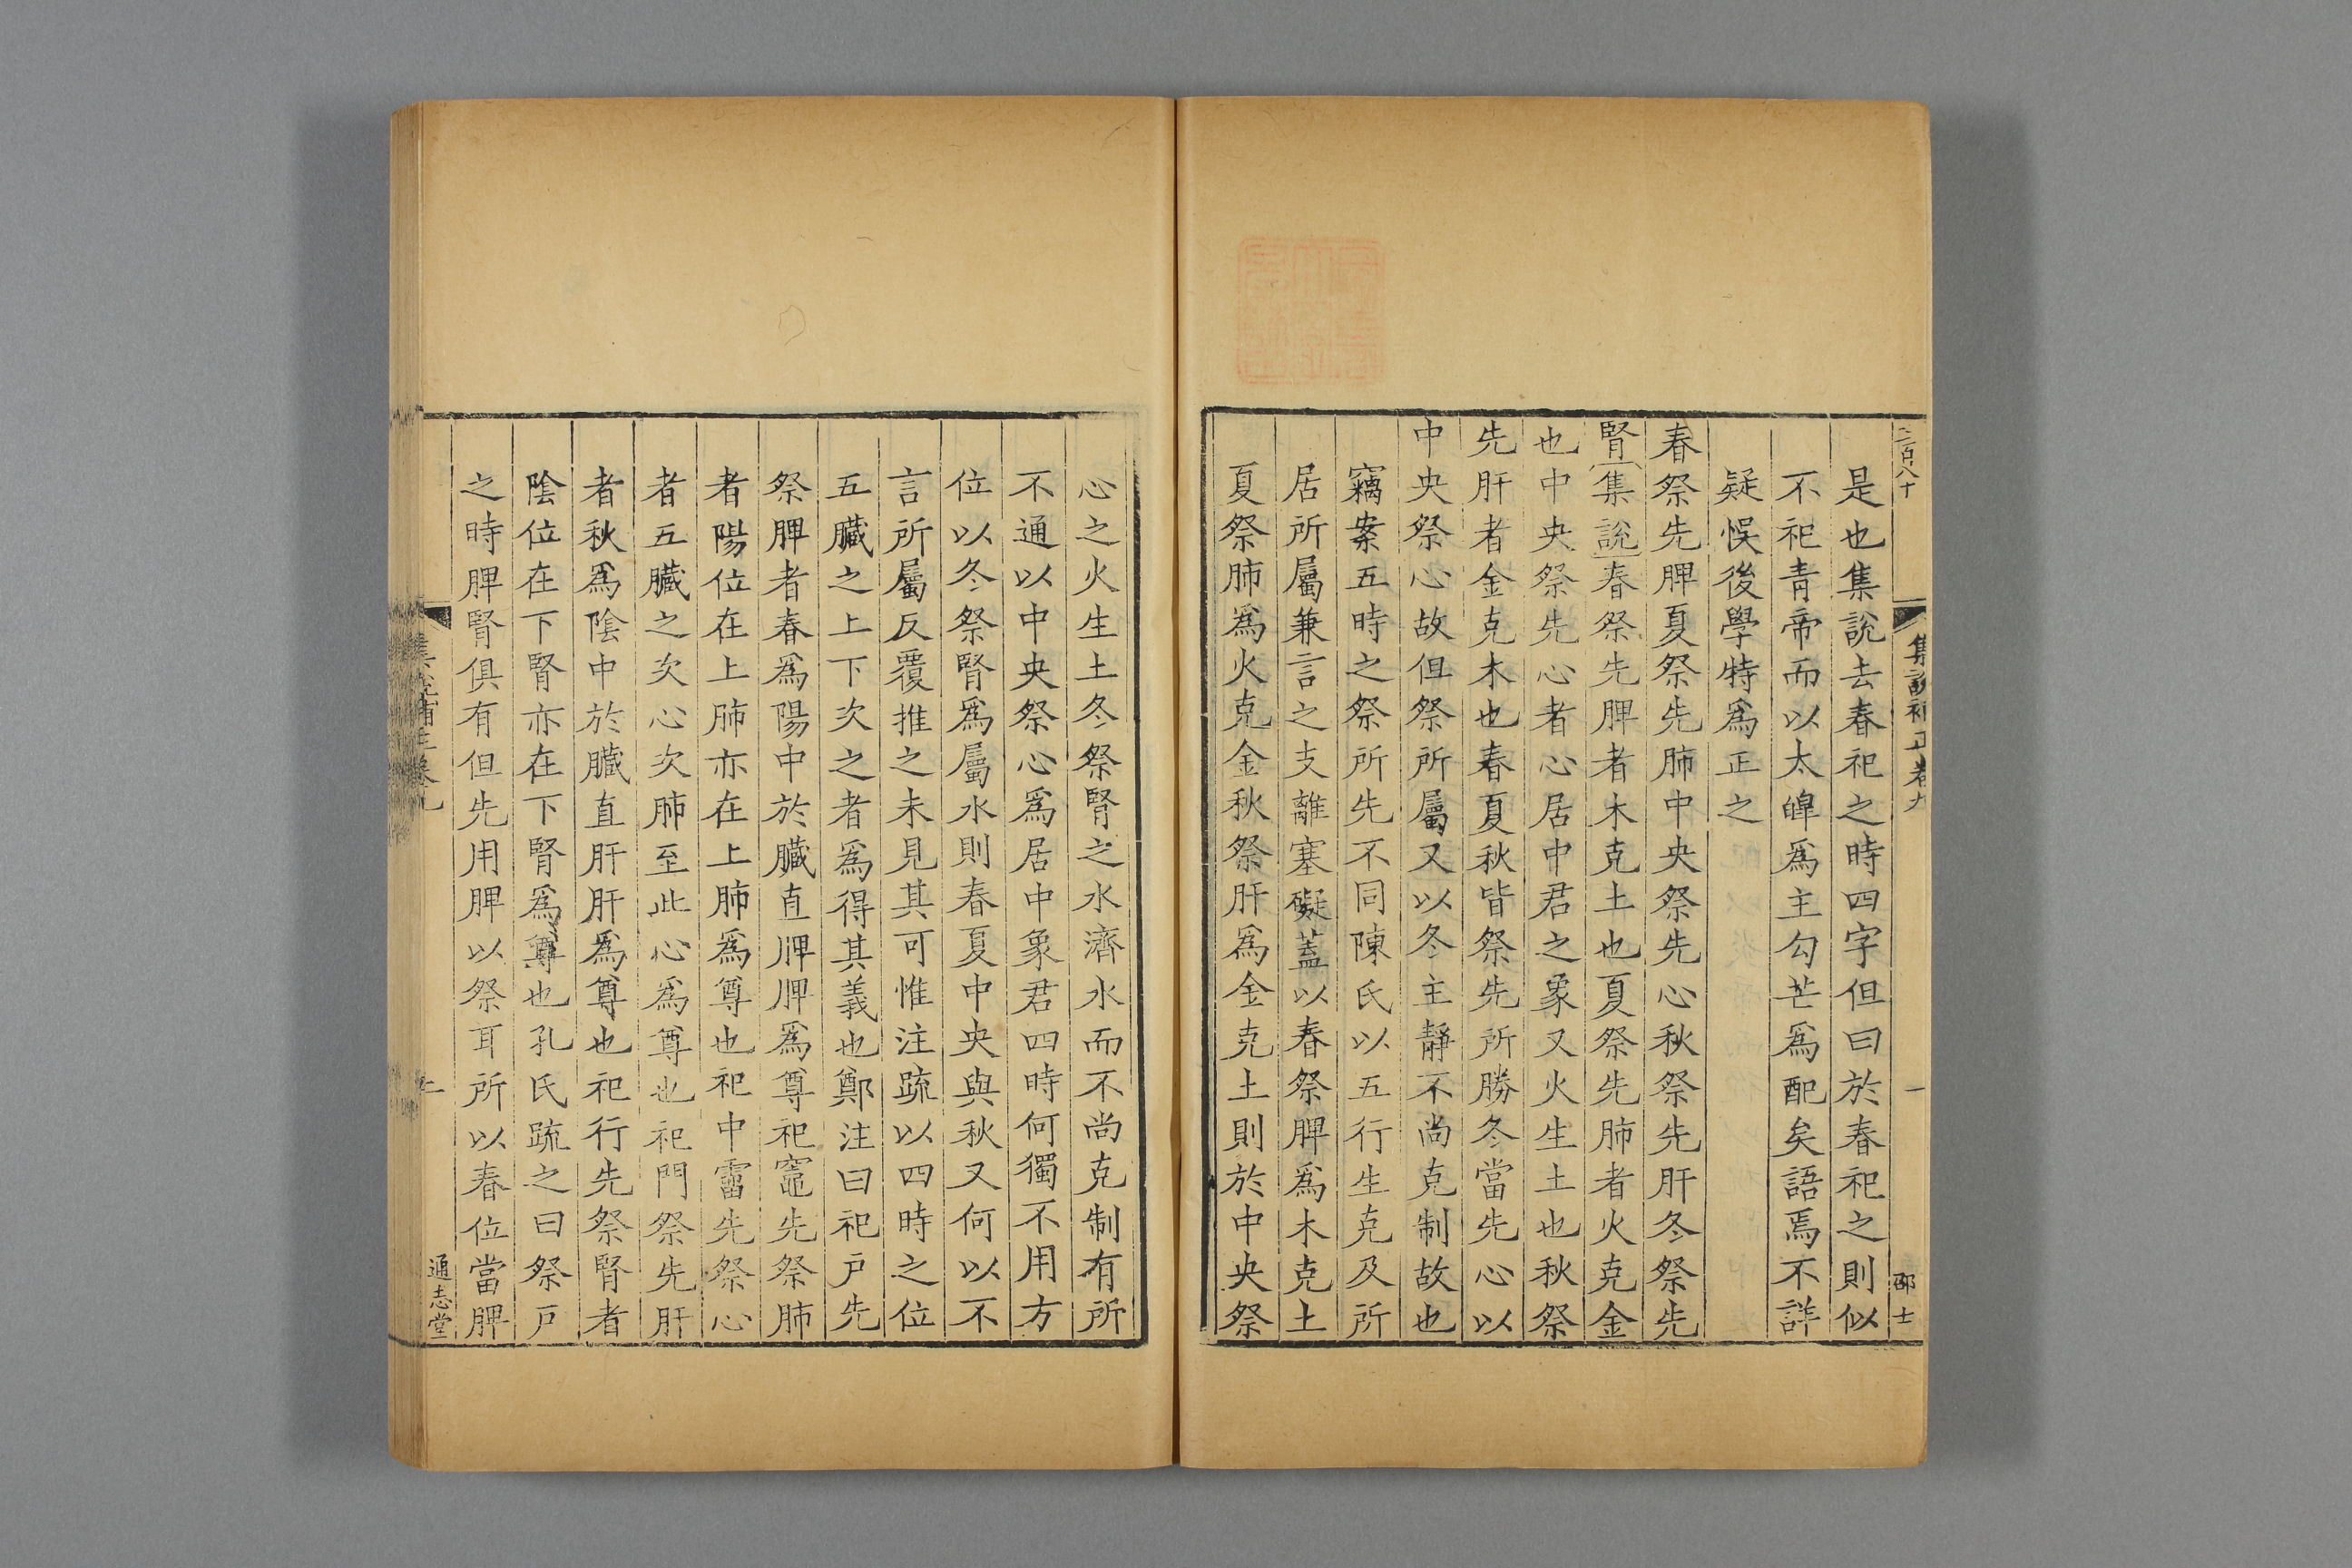 三百八十
集說補正卷九
一
邵士
是也集說去春祀之時四字但曰於春祀之則似
不祀青帝而以太皥爲主勾芒爲配矣語焉不詳
疑悞後學特爲正之
春祭先脾夏祭先肺中央祭先心秋祭先肝冬祭先
腎集說春祭先脾者木克土也夏祭先肺者火克金
也中央祭先心者心居中君之象又火生土也秋祭
先肝者金克木也春夏秋皆祭先所勝冬當先心以
中央祭心故但祭所屬又以冬主靜不尚克制故也
竊案五時之祭所先不同陳氏以五行生克及所
居所屬兼言之支離塞礙蓋以春祭脾爲木克土
夏祭肺爲火克金秋祭肝爲金克土則於中央祭
心之火生土冬祭腎之水濟水而不尚克制有所
不通以中央祭心爲居中象君四時何獨不用方
位以冬祭腎爲屬水則春夏中央與秋又何以不
言所屬反覆推之未見其可惟注疏以四時之位
五臟之上下次之者爲得其義也鄭注曰祀戸先
祭脾者春爲陽中於臟直脾脾爲尊祀竈先祭肺
者陽位在上肺亦在上肺爲尊也祀中霤先祭心
者五臟之次心次肺至此心爲尊也祀門祭先肝
者秋爲陰中於臟直肝肝爲尊也祀行先祭腎者
陰位在下腎亦在下腎爲尊也孔氏疏之曰祭戸
之時脾腎俱有但先用脾以祭耳所以春位當脾
通志堂